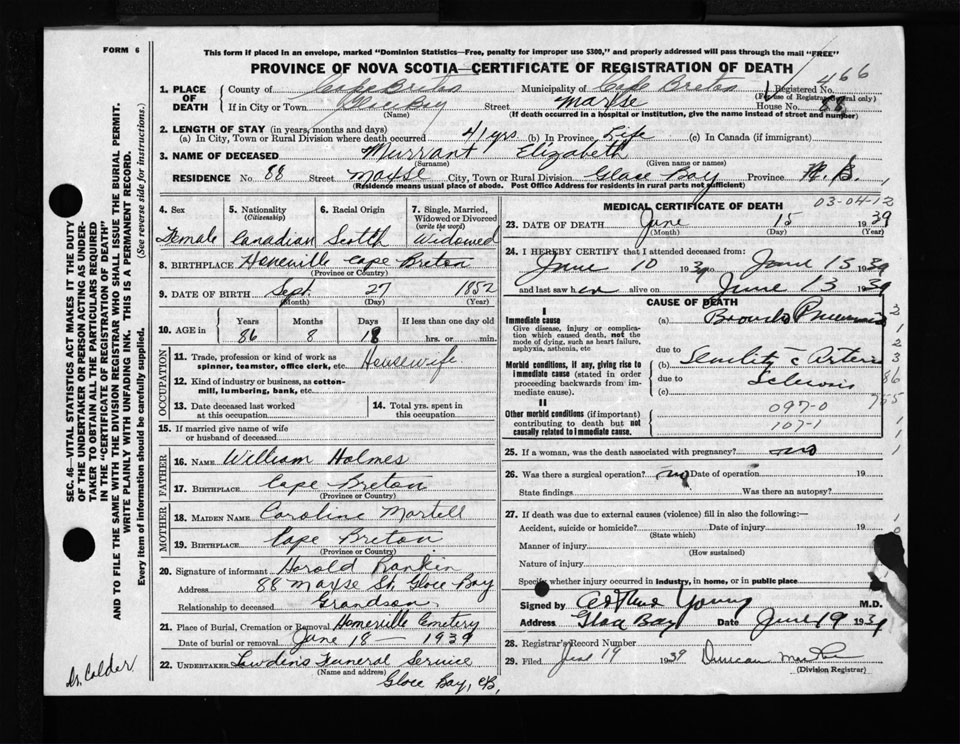 FORM 6
This form if placed in an envelope, marked "Dominion Statistics—Free, penalty for improper use $300," and properly addressed will pass through the mail "FREE"
PROVINCE OF NOVA SCOTIA—CERTIFICATE OF REGISTRATION OF DEATH
466
1. PLACE OF DEATH
County of Cape Breton Municipality of Cape Breton Registered No.
(For use of Registrar General only)
If in City or Town Glace Bay Street Marse House No. 88
(Name) (If death occurred in a hospital or institution, give the name instead of street and number)
2. LENGTH OF STAY (in years, months and days)
(a) In City, Town or Rural Division where death occurred 41 yrs. (b) In Province Life (c) In Canada (if immigrant)
3. NAME OF DECEASED Murrant Elizabeth
(Surname) (Given name or names)
RESIDENCE No. 88 Street Marse City, Town or Rural Division Glace Bay Province
(Residence means usual place of abode. Post Office Address for residents in rural parts not sufficient)
4. Sex Female
5. Nationality (Citizenship) Canadian
6. Racial Origin Scotch
7. Single, Married, Widowed or Divorced (write the word) Widowed
8. BIRTHPLACE Cape Breton
(Province or Country)
9. DATE OF BIRTH Sept. 27 1852
(Month) (Day) (Year)
10. AGE in Years 86 Months 8 Days 18 If less than one day old hrs. or min.
OCCUPATION
11. Trade, profession or kind of work as spinner, teamster, office clerk, etc. Housewife
12. Kind of industry or business, as cotton-mill, lumbering, bank, etc.
13. Date deceased last worked at this occupation
14. Total yrs. spent in this occupation
15. If married give name of wife or husband of deceased
FATHER
16. NAME William Holmes
17. BIRTHPLACE Cape Breton
(Province or Country)
MOTHER
18. MAIDEN NAME Caroline Martell
19. BIRTHPLACE Cape Breton
(Province or Country)
20. Signature of informant Harold Rankin
Address 88 Marse St. Glace Bay
Relationship to deceased Grandson
21. Place of Burial, Cremation or Removal Homeville Cemetery
Date of burial or removal June 18 — 1939
22. UNDERTAKER Lawden's Funeral Service
(Name and address)
Glace Bay, CB,
MEDICAL CERTIFICATE OF DEATH
03-04-12
23. DATE OF DEATH June 15 1939
(Month) (Day) (Year)
24. I HEREBY CERTIFY that I attended deceased from:
June 10 1939 June 15 1939
and last saw her alive on June 13 1939
CAUSE OF DEATH
I
Immediate cause
Give disease, injury or complication which caused death, not the mode of dying, such as heart failure, asphyxia, asthenia, etc
(a) Broncho Pneumonia
due to
Morbid conditions, if any, giving rise to immediate cause (stated in order proceeding backwards from immediate cause).
(b) Senility c Arterio
due to Sclerosis
(c)
II
Other morbid conditions (if important) contributing to death but not causally related to immediate cause.
097-0
107-1
25. If a woman, was the death associated with pregnancy? no
26. Was there a surgical operation? no Date of operation 19
State findings Was there an autopsy?
27. If death was due to external causes (violence) fill in also the following:—
Accident, suicide or homicide? Date of injury 19
(State which)
Manner of injury
(How sustained)
Nature of injury
Specify whether injury occurred in industry, in home, or in public place
Signed by Arthur Young M.D.
Address Glace Bay Date June 19 1939
28. Registrar's Record Number
29. Filed June 19 1939 Duncan
(Division Registrar)
SEC. 46—VITAL STATISTICS ACT MAKES IT THE DUTY
OF THE UNDERTAKER OR PERSON ACTING AS UNDER-
TAKER TO OBTAIN ALL THE PARTICULARS REQUIRED
IN THE "CERTIFICATE OF REGISTRATION OF DEATH"
AND TO FILE THE SAME WITH THE DIVISION REGISTRAR WHO SHALL ISSUE THE BURIAL PERMIT.
WRITE PLAINLY WITH UNFADING INK. THIS IS A PERMANENT RECORD.
Every item of information should be carefully supplied. (See reverse side for instructions.)
Dr. Calder